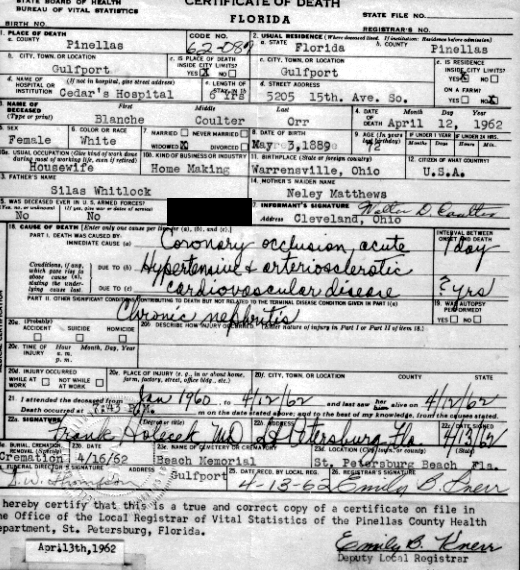 STATE BOARD OF HEALTH
BUREAU OF VITAL STATISTICS
CERTIFICATE OF DEATH
FLORIDA
STATE FILE NO.
BIRTH NO.
REGISTRAR'S NO.
1. PLACE OF DEATH
a. COUNTY
Pinellas
CODE NO.
62-089
2. USUAL RESIDENCE (Where deceased lived. If institution: Residence before admission)
a. STATE Florida
b. COUNTY Pinellas
b. CITY, TOWN, OR LOCATION
Gulfport
c. IS PLACE OF DEATH INSIDE CITY LIMITS?
YES X NO
c. CITY, TOWN, OR LOCATION
Gulfport
d. IS RESIDENCE INSIDE CITY LIMITS?
YES X NO
d. NAME OF HOSPITAL OR INSTITUTION
(If not in hospital, give street address)
Cedar's Hospital
e. LENGTH OF STAY IN 1b
6 Yrs
d. STREET ADDRESS
5205 15th. Ave. So.
ON A FARM?
YES NO X
3. NAME OF DECEASED (Type or print)
First Middle Last
Blanche Coulter Orr
4. DATE OF DEATH
Month Day Year
April 12, 1962
5. SEX
Female
6. COLOR OR RACE
White
7. MARRIED NEVER MARRIED
WIDOWED X DIVORCED
8. DATE OF BIRTH
May 3,1889
9. AGE (In years last birthday)
72
IF UNDER 1 YEAR
IF UNDER 24 HRS.
Months Days Hours Min.
10a. USUAL OCCUPATION (Give kind of work done during most of working life, even if retired)
Housewife
10b. KIND OF BUSINESS OR INDUSTRY
Home Making
11. BIRTHPLACE (State or foreign country)
Warrensville, Ohio
12. CITIZEN OF WHAT COUNTRY?
U.S.A.
13. FATHER'S NAME
Silas Whitlock
14. MOTHER'S MAIDEN NAME
Neley Matthews
15. WAS DECEASED EVER IN U.S. ARMED FORCES?
(Yes, no, or unknown) (If yes, give war or dates of service)
No No
17. INFORMANT'S SIGNATURE
D. Coulter
Address Cleveland, Ohio
18. CAUSE OF DEATH [Enter only one cause per line for (a), (b), and (c).]
PART I. DEATH WAS CAUSED BY:
IMMEDIATE CAUSE (a)
Coronary occlusion, acute
INTERVAL BETWEEN ONSET AND DEATH
1 day
Conditions, if any, which gave rise to above cause (a), stating the underlying cause last.
DUE TO (b)
Hypertensive & arteriosclerotic
DUE TO (c)
cardiovascular disease
? yrs
PART II. OTHER SIGNIFICANT CONDITIONS CONTRIBUTING TO DEATH BUT NOT RELATED TO THE TERMINAL DISEASE CONDITION GIVEN IN PART I(a)
Chronic nephritis
19. WAS AUTOPSY PERFORMED?
YES NO
20a. (Probably)
ACCIDENT SUICIDE HOMICIDE
20b. DESCRIBE HOW INJURY OCCURRED. (Enter nature of injury in Part I or Part II of item 18.)
20c. TIME OF INJURY
Hour Month, Day, Year
a. m.
p. m.
20d. INJURY OCCURRED
WHILE AT WORK NOT WHILE AT WORK
20e. PLACE OF INJURY (e. g., in or about home, farm, factory, street, office bldg., etc.)
20f. CITY, TOWN, OR LOCATION COUNTY STATE
21. I attended the deceased from Jan 1960 to 4/12/62 and last saw her alive on 4/12/62
Death occurred at 7:45 m on the date stated above; and to the best of my knowledge, from the causes stated.
22a. SIGNATURE (Degree or title)
Frank Holecek MD
22b. ADDRESS
St Petersburg Fla.
22c. DATE SIGNED
4/13/62
23a. BURIAL, CREMATION, REMOVAL (Specify)
Cremation
23b. DATE
4/16/62
23c. NAME OF CEMETERY OR CREMATORY
Beach Memorial
23d. LOCATION (City, town, or county) (State)
St. Petersburg Beach Fla.
24. FUNERAL DIRECTOR'S SIGNATURE ADDRESS
Thompson
Gulfport
25. DATE RECD. BY LOCAL REG.
4-13-62
26. REGISTRAR'S SIGNATURE
Emily B. Knerr
hereby certify that this is a true and correct copy of a certificate on file in
the Office of the Local Registrar of Vital Statistics of the Pinellas County Health
Department, St. Petersburg, Florida.
April 13th,1962
Emily B. Knerr
Deputy Local Registrar